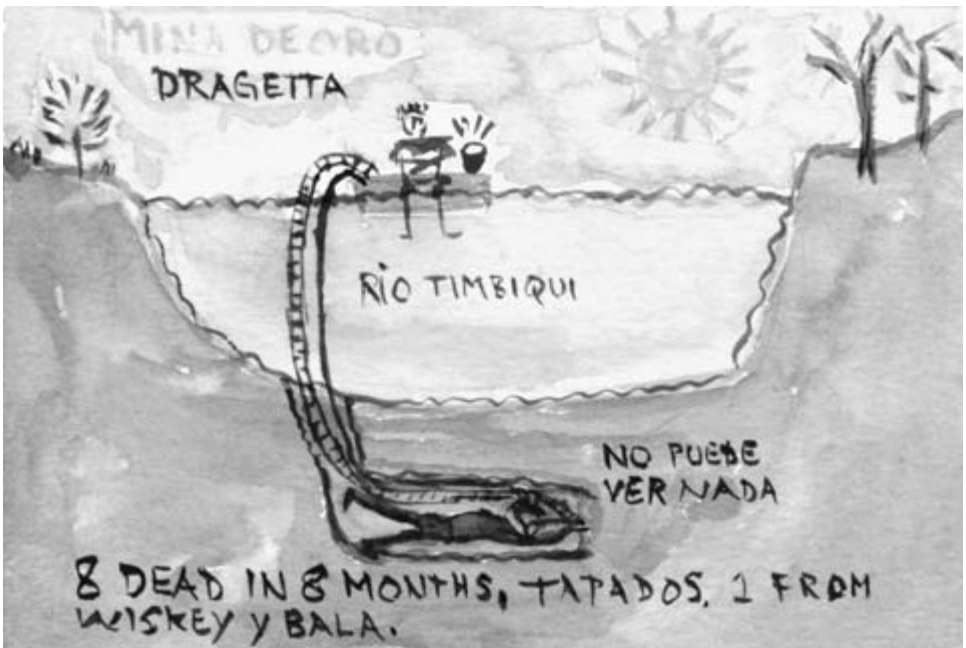 MINA DE ORO
DRAGETTA
RIO TIMBIQUI
NO PUEDE
VER NADA
8 DEAD IN 8 MONTHS, TAPADOS. 1 FROM
WISKEY Y BALA.